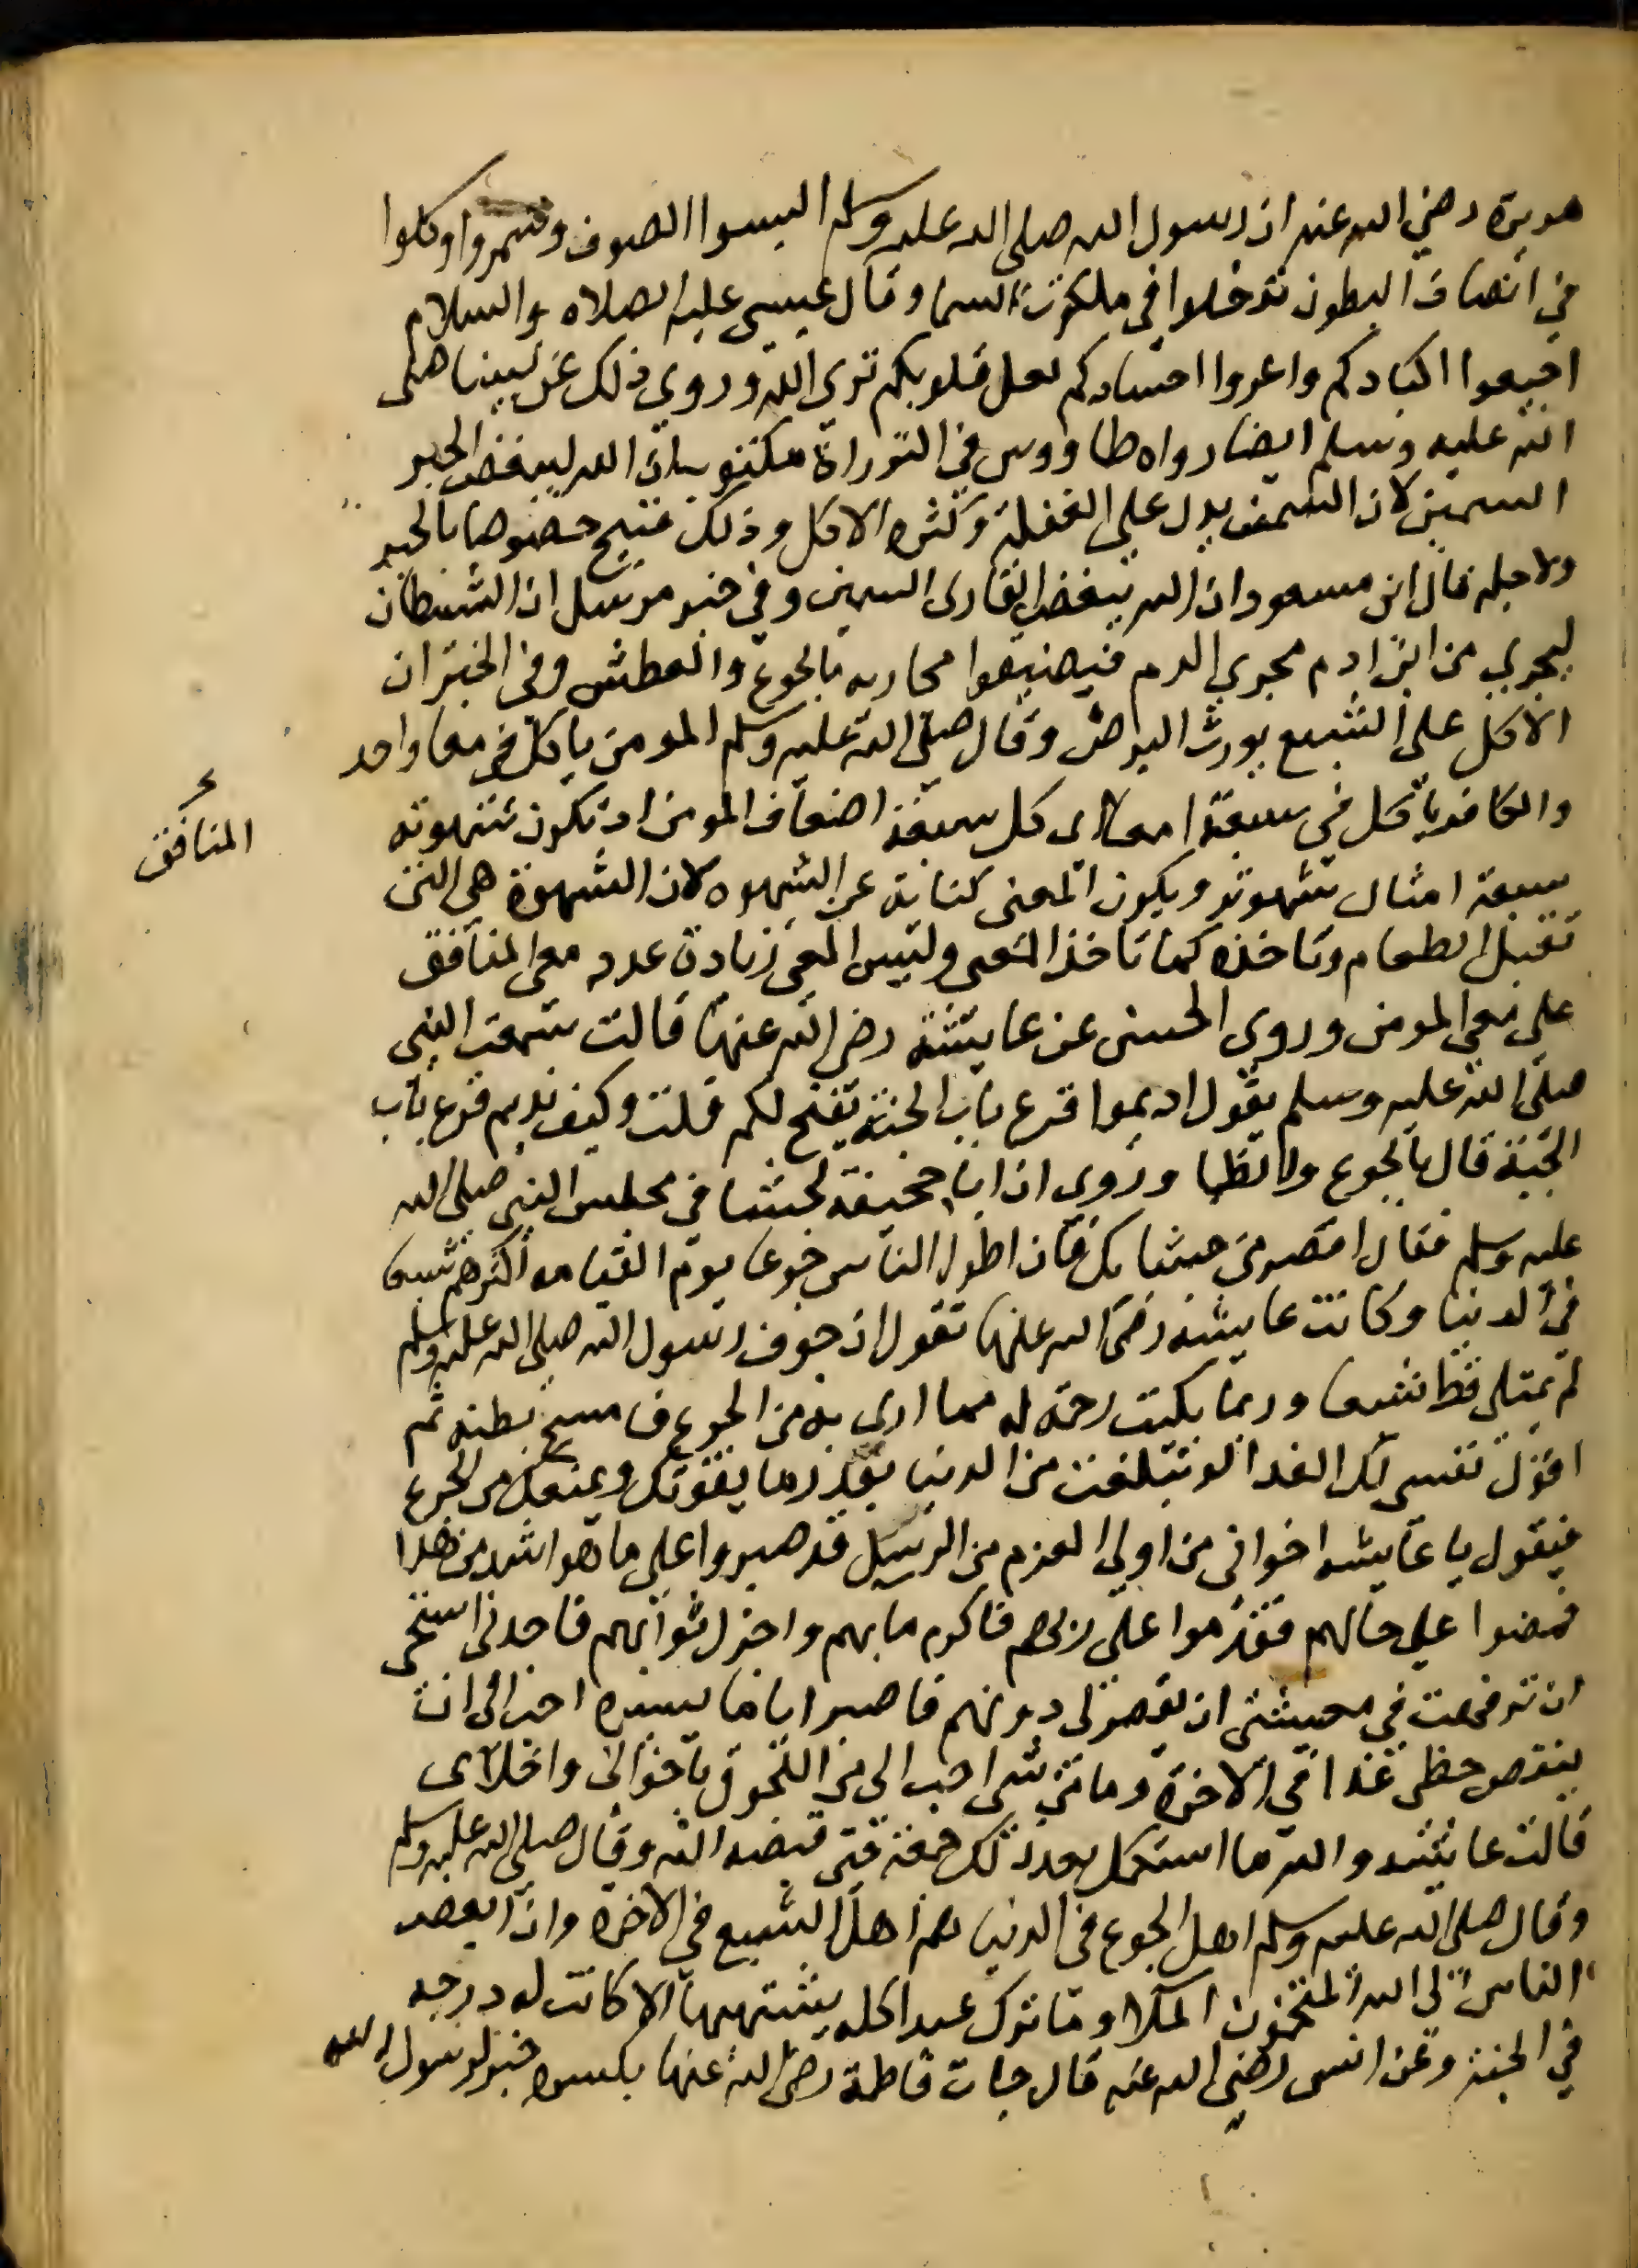 هريرة رضي الله عنه ان رسول الله صلى الله عليه وسلم البسوا الصوف وشمروا وكلوا
في انصاف البطون تدخلوا في ملكوت السما وقال عيسى عليه الصلاه والسلام
اجيعوا اكبادكم واعروا اجسادكم لعل قلوبكم ترى الله وروي ذلك عن نبينا صلى
الله عليه وسلم ايضا رواه طاووس في التوراة مكتوب ان الله ليبغض الحبر
السمين لان السمن يدل على الغفلة وكثره الاكل وذلك قبيح خصوصا بالحبر
ولاجله قال ابن مسعود ان الله يبغض القارى السمين وفي خبر مرسل ان الشيطان
ليجري من ابن ادم مجرى الدم فيضيقوا مجاريه بالجوع والعطش وفي الخبر ان
الاكل على الشبع يورث البرص وقال صلى الله عليه وسلم المومن ياكل في معا واحد
والكافر ياكل في سبعة امعا اى كل سبعة اضعاف المومن او تكون شهوته
المنافق
سبعة امثال شهوته ويكون المعى كناية عن الشهوه لان الشهوة هي التى
تقبل الطعام وتاخذه كما تاخذ المعى وليس المعى زيادة عدد معى المنافق
على معى المومن وروى الحسن عن عايشة رضى الله عنها قالت سمعت النبى
صلى الله عليه وسلم يقول اديموا قرع باب الجنة يفتح لكم قلت وكيف نديم قرع باب
الجنة قال بالجوع والظما وروى ان ابا جحيفة تجشا في مجلس النبي صلى الله
عليه وسلم فقال اقصر من جشايك فان اطول الناس جوعا يوم القيامه اكثرهم شبعا
في الدنيا وكانت عايشه رضى الله عنها تقول ان جوف رسول الله صلى الله عليه وسلم
لم يمتلى قط شبعا وربما بكيت رحمة له مما ارى به من الجوع فامسح بطنه ثم
اقول نفسى لك الفدا لو تبلغت من الدنيا بقدر ما يقوتك ويمنعك من الجوع
فيقول يا عايشه اخوانى من اولى العزم من الرسل قد صبروا على ما هو اشد من هذا
فمضوا على حالهم فقدموا على ربهم فاكرم مابهم واجزل ثوابهم فاجدنى استحى
ان ترفهت في معيشتى ان يقصر بى دونهم فاصبر اياما يسيره احب الى ان
ينقص حظى غدا في الاخرة وما من شى احب الى من اللحوق باخوانى واخلاى
قالت عايشه والله ما استكمل بعد ذلك جمعة حتى قبضه الله وقال صلى الله عليه وسلم
وقال صلى الله عليه وسلم اهل الجوع في الدنيا هم اهل الشبع في الاخرة وان ابغض
الناس الى الله المتخمون الملا وما ترك عبد اكله يشتهيها الا كانت له درجه
في الجنة وعن انس رضي الله عنه قال جات فاطمة رضى الله عنها بكسره خبز لرسول الله